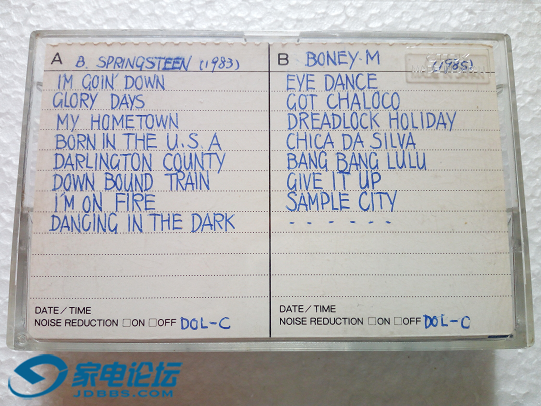 A B. SPRINGSTEEN (1983)
I'M GOIN' DOWN
GLORY DAYS
MY HOMETOWN
BORN IN THE U.S.A
DARLINGTON COUNTY
DOWN BOUND TRAIN
I'M ON FIRE
DANCING IN THE DARK
DATE/TIME
NOISE REDUCTION □ON □OFF DOL-C
B BONEY-M (1985)
EYE DANCE
GOT CHALOCO
DREADLOCK HOLIDAY
CHICA DA SILVA
BANG BANG LULU
GIVE IT UP
SAMPLE CITY
- - - - - -
DATE/TIME
NOISE REDUCTION □ON □OFF DOL-C
家电论坛
JDBBS.COM